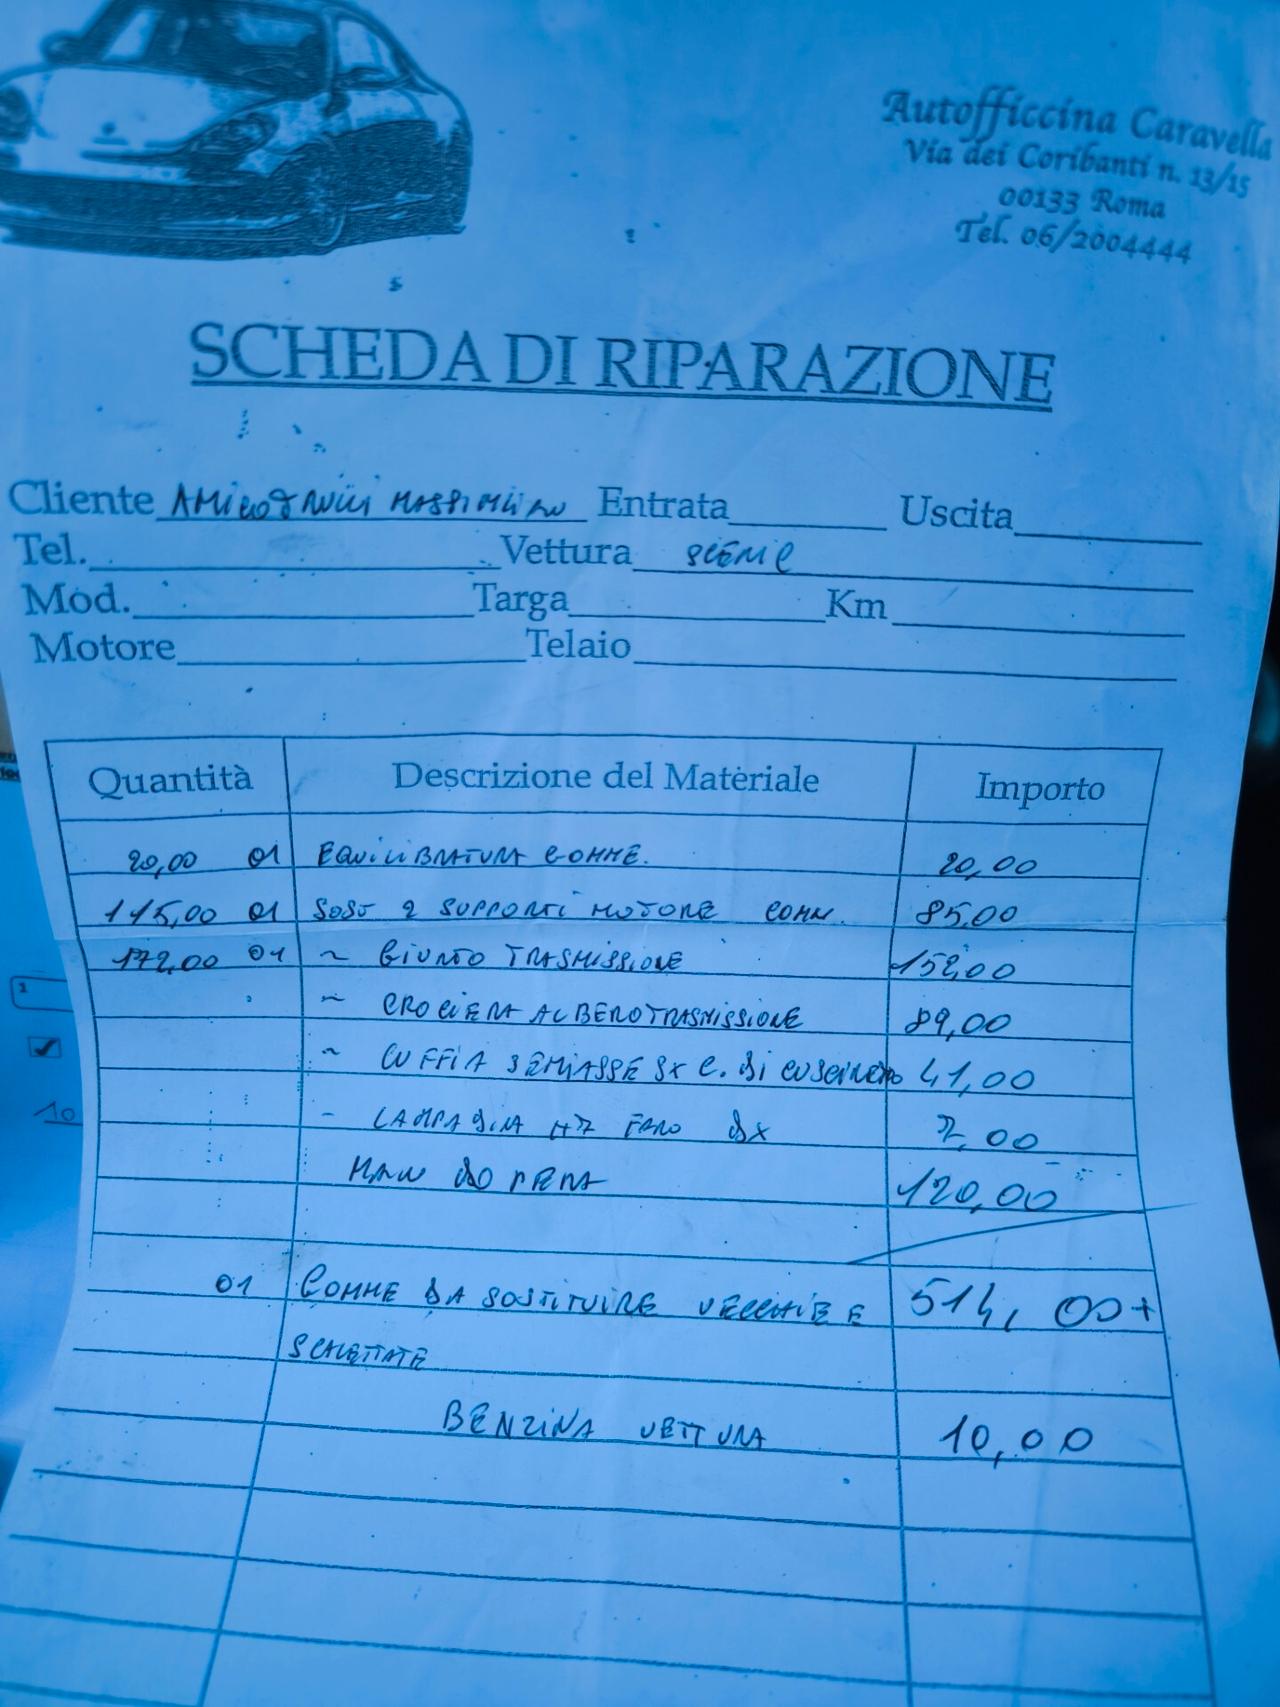 Autofficcina Caravella
Via dei Coribanti n. 13/15
00133 Roma
Tel. 06/2004444
SCHEDA DI RIPARAZIONE
Cliente Entrata Uscita
Tel. Vettura SCENIC
Mod. Targa Km
Motore Telaio
Quantità Descrizione del Materiale Importo
20,00 01 EQUILIBRATURA GOMME. 20,00
115,00 01 SOST 2 SUPPORTI MOTORE 85,00
172,00 01 ~ GIUNTO TRASMISSIONE 152,00
~ CROCIERA ALBERO TRASMISSIONE 89,00
~ CUFFIA SEMIASSE SX C. DI 41,00
- LAMPADINA H7 FARO DX 7,00
MANODOPERA 120,00
01 GOMME DA SOSTITUIRE VECCHIE E 514,00+
SCALETTATE
BENZINA VETTURA 10,00
1
10